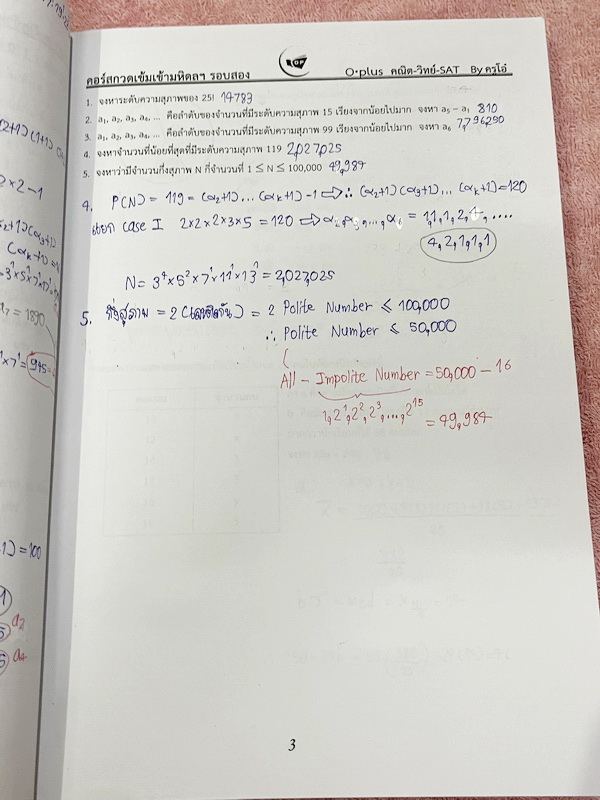 คอร์สกวดเข้มเข้ามหิดลฯ รอบสอง
OP
O·plus คณิต-วิทย์-SAT By ครูโอ๋
1. จงหาระดับความสุภาพของ 25! 14783
2. a₁, a₂, a₃, a₄, ... คือลำดับของจำนวนที่มีระดับความสุภาพ 15 เรียงจากน้อยไปมาก จงหา a₅ − a₁ 810
3. a₁, a₂, a₃, a₄, ... คือลำดับของจำนวนที่มีระดับความสุภาพ 99 เรียงจากน้อยไปมาก จงหา a₆ 7,796,250
4. จงหาจำนวนที่น้อยที่สุดที่มีระดับความสุภาพ 119 2,027,025
5. จงหาว่ามีจำนวนกึ่งสุภาพ N กี่จำนวนที่ 1 ≤ N ≤ 100,000 49,984
4. P(N) = 119 = (α₂+1)...(αₖ+1)−1 ⇒ ∴ (α₂+1)(α₃+1)... (αₖ+1)=120
เลือก case I 2×2×2×3×5 = 120 ⇒ α₂,α₃,...,α₆ = 1,1,1,2,4, ....
4,2,1,1,1
N = 3⁴×5²×7¹×11¹×13¹ = 2,027,025
5. กึ่งสุภาพ = 2( ) = 2 Polite Number ≤ 100,000
∴ Polite Number ≤ 50,000
All − Impolite Number = 50,000 − 16
1,2¹,2²,2³,...,2¹⁵ = 49,984
3
2×2−1
a₂ = 1890
×7¹ = 945
= 100
a₂
a₄